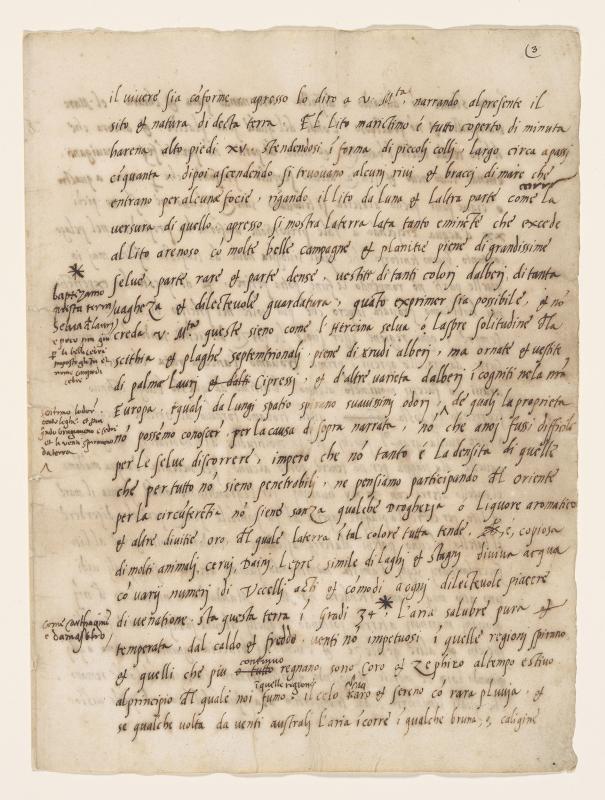 3
il vivere sia cōforme apresso lo diro a V. M.ta, narrando alpresente il
sito et natura di decta terra El lito marictimo è tutto coperto di minuta
harena alto piedi xv. stendendosi ī forma di piccoli colli, largo circa a passi
cīquanta, dipoi ascendendo si truovano alcuni rivi et bracci di mare che
entrano per alcune focie, rigando il lito da luna et laltra parte come
corre
la
versura di quello, apresso si mostra la terra lata tanto eminēte che excede
al lito arenoso cō molte belle campagne et planitie piene di grandissime
selve, parte rare et parte dense, vestiti di tanti colori dalberi, di tanta
vagheza et dilectevole guardatura, quāto exprimer sia possibile, et nō
creda V. M.ta queste sieno come l'Hercina selva ò laspre solitudine
scithia et plaghe septemtrionali, piene di xrudi alberi, ma ornate et vestite
di palme laurj et cipressi, et d'altre varieta dalberi īcogniti nela nrā
Europa, e quali da lungi spatio spirano suavissimi odori, de quali la proprieta
nō possemo conoscer, per la causa di sopra narrata, nō che a noi fussi difficile
per le selve discorrere, impero che nō tanto è la densita di quelle
che per tutto nō sieno penetrabili, ne pensiamo participando oriente
per la circūferētia nō siene sanza qualche drogheria o liquore aromatico
et altre divitie oro, quale la terra ī tal colore tutta tende. e, copiosa
di molti animali, cervi, Daini, Lepre simile di laghi et stagni di viva acqua
cō varij numeri di Uccelli acti et cōmodi a ogni dilectevole piacere
di venatione. Sta questa terra ī gradi 34 * L'aria salubre pura et
temperata, dal caldo et freddo, venti nō impetuosi ī quelle regioni spirano
continuo
et quelli che piu regnano sono Coro et Zephiro al tempo estivo
ī quelle regioni
al principio quale noi fumo: il celo
raro et sereno cō rara pluvia, et
se qualche volta da venti australi l'aria īcorre ī qualche bruma, ò caligine
*
baptizamo
questa terra
selva lauri
e poco piu giu
cedri
sentimo lodore
cento leghe et piu
quādo brugiavano e cedri
et li venti spiravano
da terra
come cartagine
e damasco